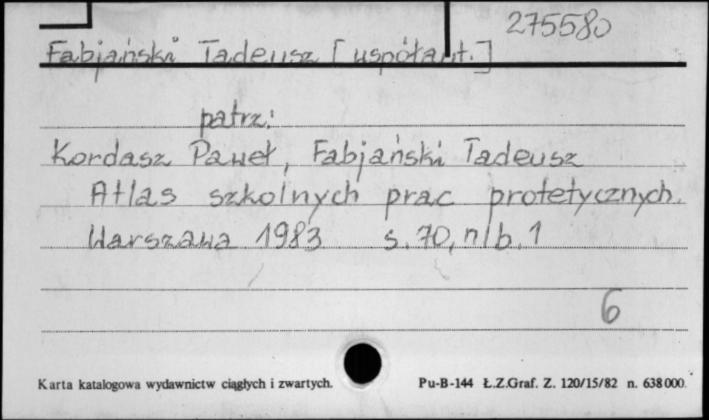 275580
Fabjański Tadeusz [współaut.]
patrz:
Kordasz Paweł, Fabjański Tadeusz
Atlas szkolnych prac protetycznych.
Warszawa 1983 s. 70, nlb. 1
6
Karta katalogowa wydawnictw ciągłych i zwartych.
Pu-B-144 Ł.Z.Graf. Z. 120/15/82 n. 638000.